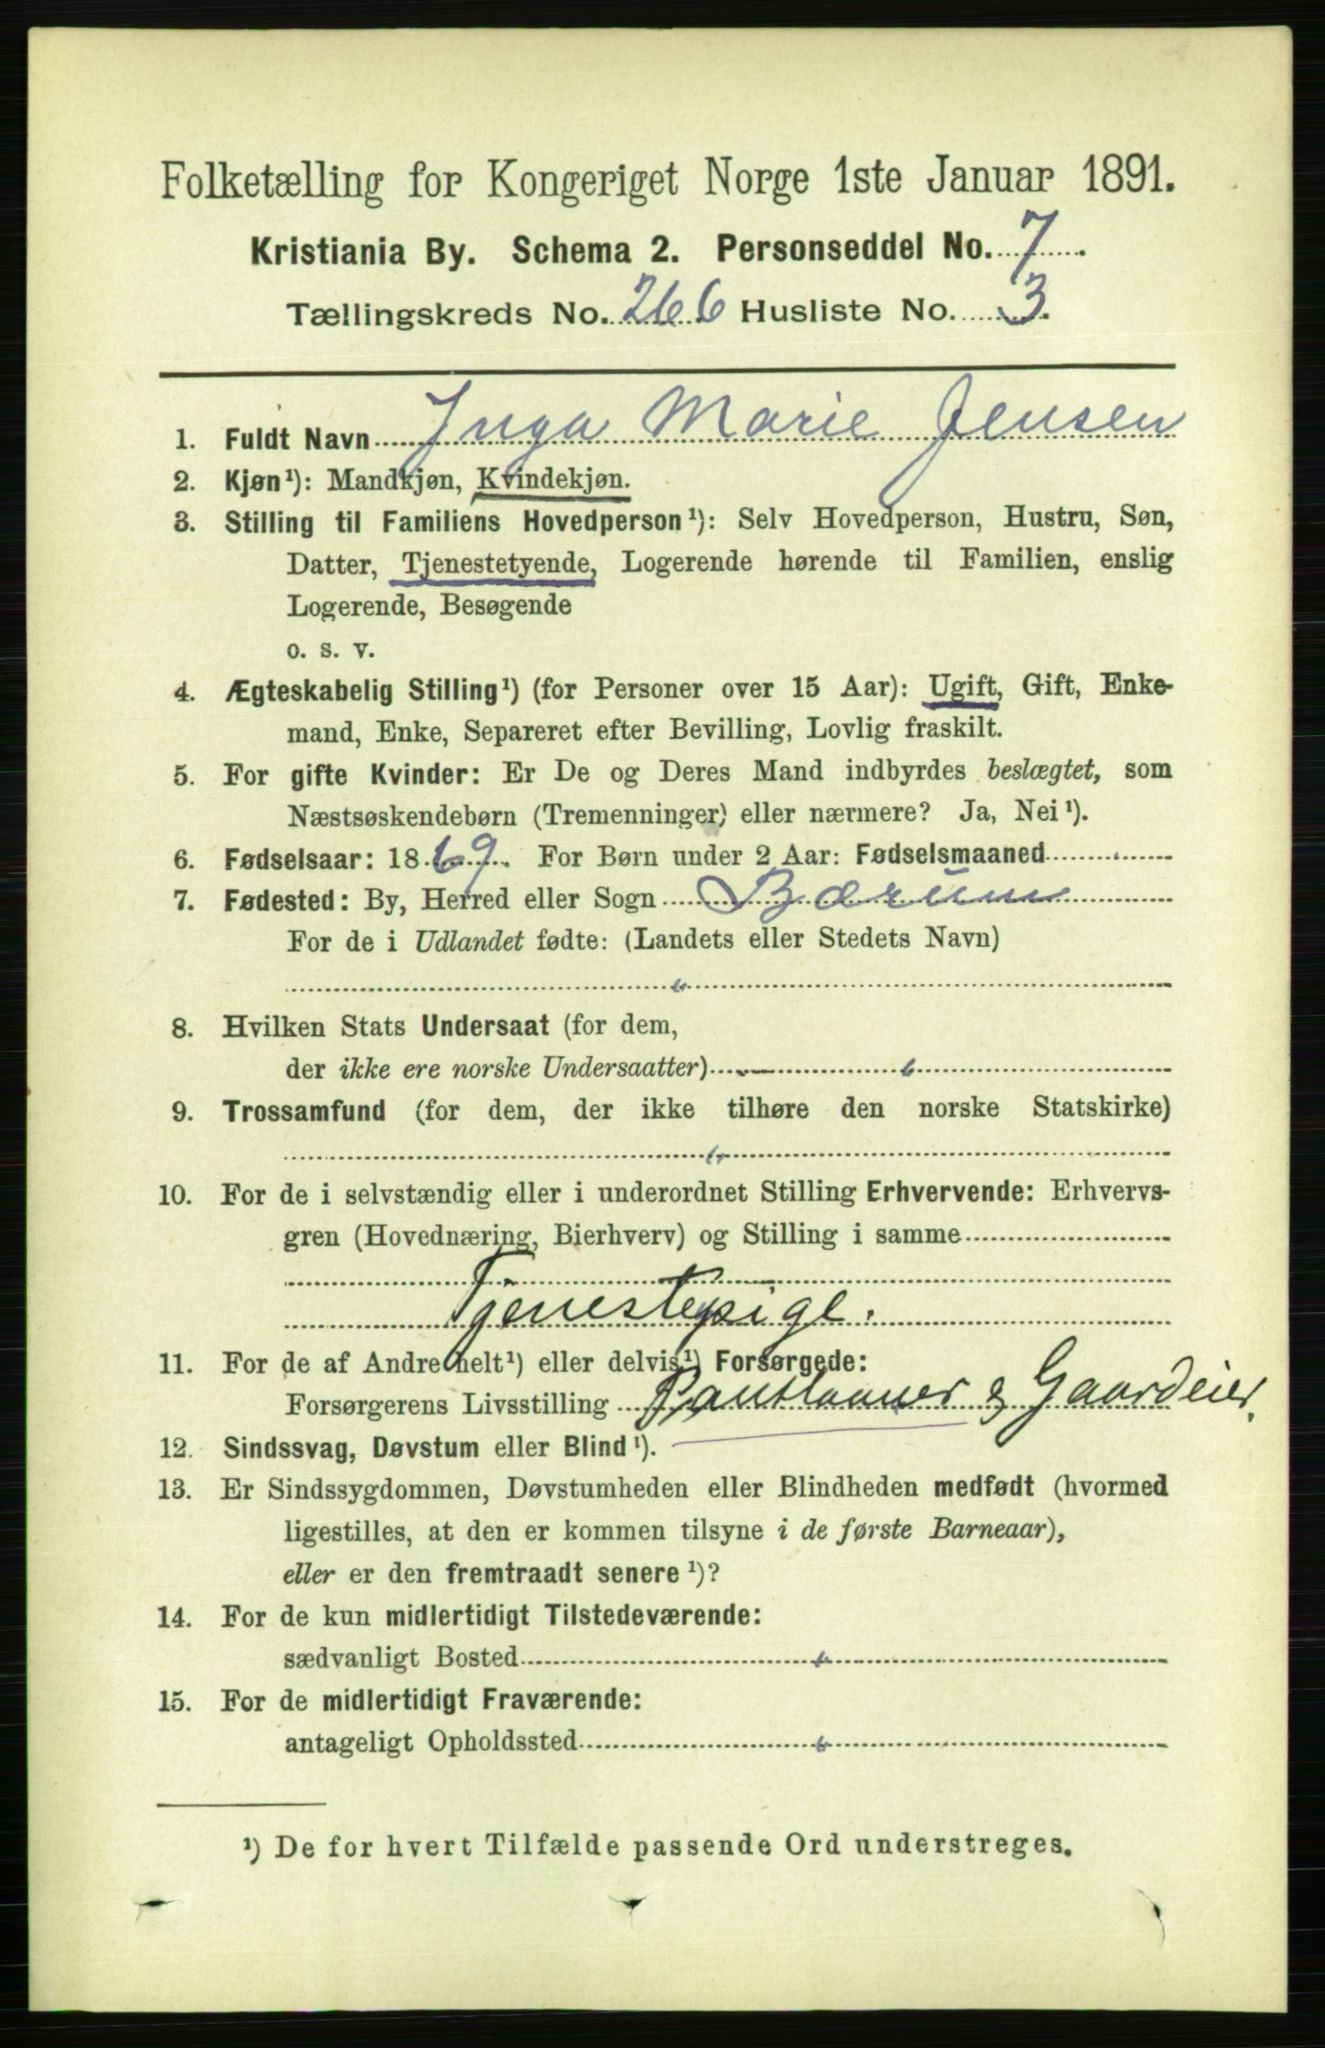 Folketælling for Kongeriget Norge 1ste Januar 1891.
Kristiania By. Schema 2. Personseddel No. 7.
Tællingskreds No. 266 Husliste No. 3.
1. Fuldt Navn Inga Marie Jensen
2. Kjøn¹): Mandkjøn, Kvindekjøn.
3. Stilling til Familiens Hovedperson¹): Selv Hovedperson, Hustru, Søn,
Datter, Tjenestetyende, Logerende hørende til Familien, enslig
Logerende, Besøgende
o. s. v.
4. Ægteskabelig Stilling¹) (for Personer over 15 Aar): Ugift, Gift, Enke-
mand, Enke, Separeret efter Bevilling, Lovlig fraskilt.
5. For gifte Kvinder: Er De og Deres Mand indbyrdes beslægtet, som
Næstsøskendebørn (Tremenninger) eller nærmere? Ja, Nei¹).
6. Fødselsaar: 1869. For Børn under 2 Aar: Fødselsmaaned
7. Fødested: By, Herred eller Sogn Bærum
For de i Udlandet fødte: (Landets eller Stedets Navn)
8. Hvilken Stats Undersaat (for dem,
der ikke ere norske Undersaatter)
9. Trossamfund (for dem, der ikke tilhøre den norske Statskirke)
10. For de i selvstændig eller i underordnet Stilling Erhvervende: Erhvervs-
gren (Hovednæring, Bierhverv) og Stilling i samme
Tjenestepige.
11. For de af Andre helt¹) eller delvis¹) Forsørgede:
Forsørgerens Livsstilling Pantlaaner & Gaardeier.
12. Sindssvag, Døvstum eller Blind¹).
13. Er Sindssygdommen, Døvstumheden eller Blindheden medfødt (hvormed
ligestilles, at den er kommen tilsyne i de første Barneaar),
eller er den fremtraadt senere¹)?
14. For de kun midlertidigt Tilstedeværende:
sædvanligt Bosted
15. For de midlertidigt Fraværende:
antageligt Opholdssted
¹) De for hvert Tilfælde passende Ord understreges.